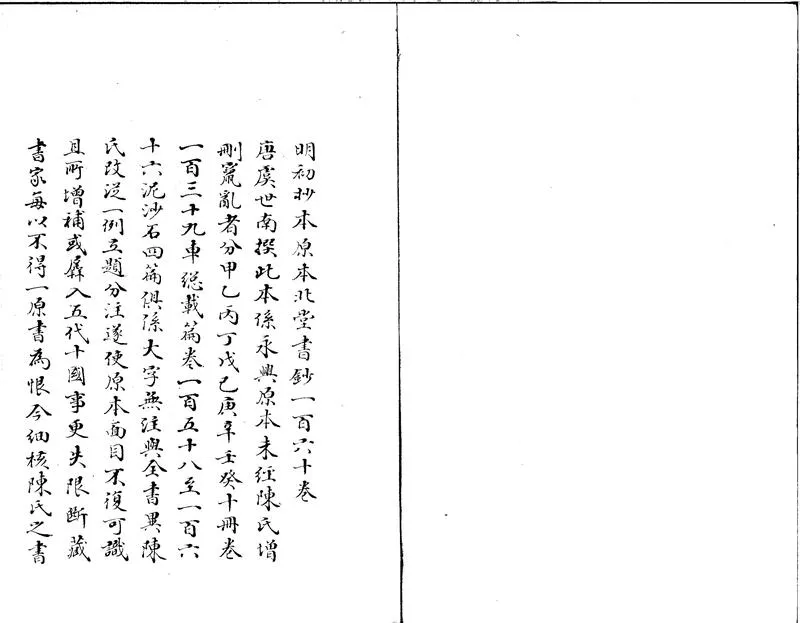 明初抄本原本北堂書鈔一百六十卷
唐虞世南撰此本係永興原本未經陳氏增
刪竄亂者分甲乙丙丁戊己庚辛壬癸十冊卷
一百三十九車總載篇卷一百五十八至一百六
十六泥沙石四篇俱係大字無注與全書異陳
氏改從一例立題分注遂使原本面目不復可識
且所增補或羼入五代十國事更失限斷藏
書家每以不得一原書為恨今細核陳氏之書